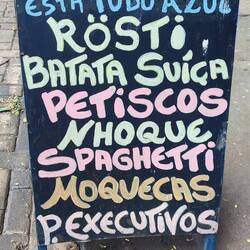 ESTÁ TUDO AZUL
RÖSTI
BATATA SUÍÇA
PETISCOS
NHOQUE
SPAGHETTI
MOQUECAS
P. EXECUTIVOS